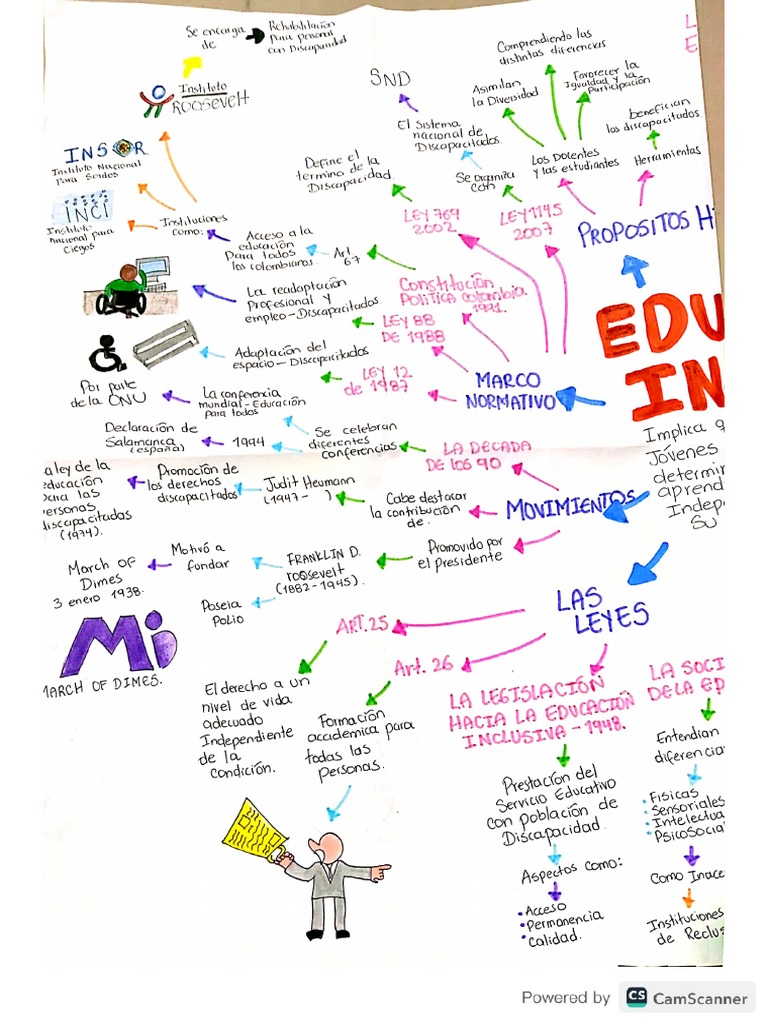 Se encarga
de
Rehabilitación
para personas
con Discapacidad
Instituto
ROOSEVELT
INSOR
Instituto Nacional
Para Sordos
INCI
Instituto
nacional para
Ciegos
Instituciones
como:
Acceso a la
educación
Para todos
los colombianos.
Art
67
SND
El Sistema
nacional de
Discapacitados.
Se organiza
con
Define el
termino de la
Discapacidad.
LEY 769
2002
LEY 1145
2007
Comprendiendo las
distintas diferencias
Asimilan
la Diversidad
Favorecer la
Igualdad y la
Participación
benefician
los discapacitados.
Los Docentes
y las estudiantes
Herramientas
PROPOSITOS H
L
E
La readaptación
Profesional y
empleo-Discapacitados
Constitución
Política Colombia
1991.
LEY 88
DE 1988
Adaptación del
espacio-Discapacitados
LEY 12
de 1987
MARCO
NORMATIVO
EDU
IN
Implica q
Jóvenes
determin
aprend
Indep
su
Por parte
de la ONU
La conferencia
mundial-Educación
para todos
Declaración de
Salamanca
(españa)
1994
Se celebran
diferentes
conferencias
LA DECADA
DE LOS 90
a ley de la
educación
para las
ersonas
discapacitadas
(1974).
Promoción de
los derechos
discapacitados
Judit Heumann
(1947- )
Cabe destacar
la contribución
de.
MOVIMIENTOS
March OF
Dimes
3 enero 1938.
Motivó a
fundar
FRANKLIN D.
roosevelt
(1882-1945).
Promovido por
el presidente
Poseia
Polio
MARCH OF DIMES.
LAS
LEYES
ART.25
Art. 26
El derecho a un
nivel de vida
adecuado
Independiente
de la
condición.
Formación
academica para
todas las
personas.
LA LEGISLACIÓN
HACIA LA EDUCACIÓN
INCLUSIVA-1948.
Prestación del
Servicio Educativo
con población de
Discapacidad.
Aspectos como:
•Acceso
•Permanencia
•Calidad.
LA SOCI
DE LA ED
Entendian
diferencia
•Fisicas
•Sensoriales
•Intelectua
•Psicosocia
Como Inace
Instituciones
de Reclus
Powered by CS CamScanner